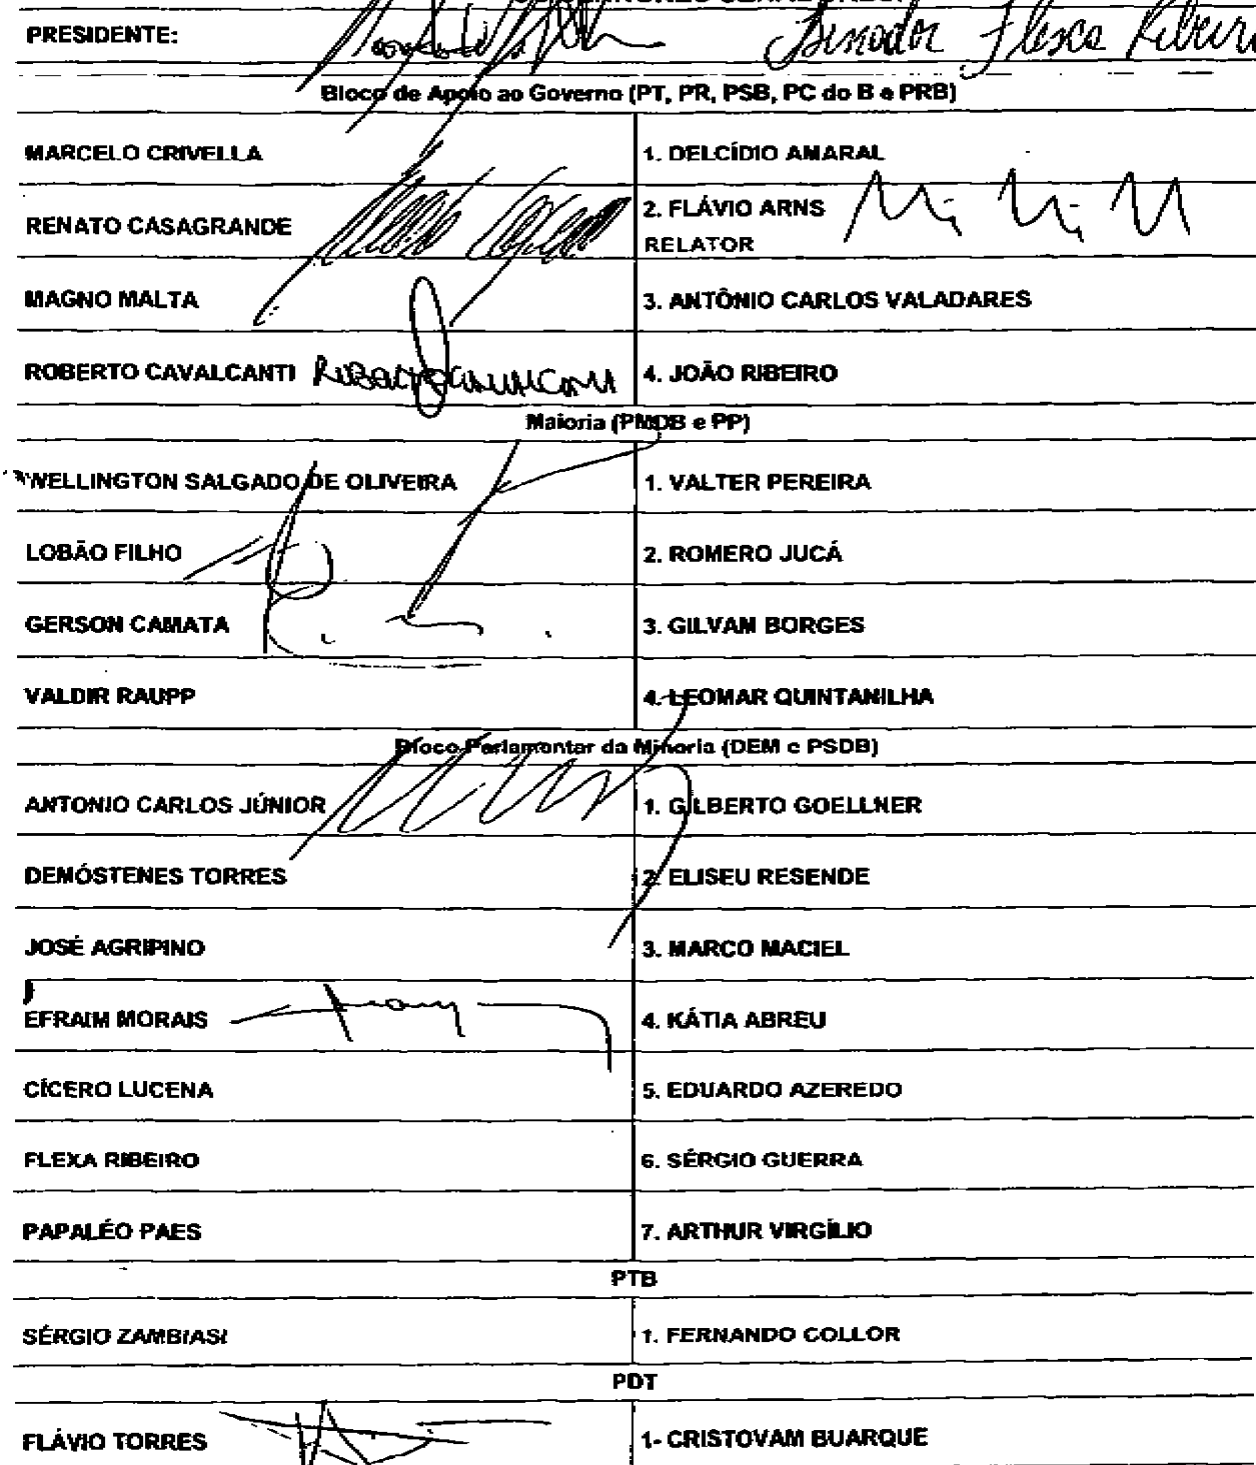 PRESIDENTE: Senador Flexa Ribeiro
Bloco de Apoio ao Governo (PT, PR, PSB, PC do B e PRB)
MARCELO CRIVELLA 1. DELCÍDIO AMARAL
RENATO CASAGRANDE 2. FLÁVIO ARNS
RELATOR
MAGNO MALTA 3. ANTÔNIO CARLOS VALADARES
ROBERTO CAVALCANTI 4. JOÃO RIBEIRO
Maioria (PMDB e PP)
WELLINGTON SALGADO DE OLIVEIRA 1. VALTER PEREIRA
LOBÃO FILHO 2. ROMERO JUCÁ
GERSON CAMATA 3. GILVAM BORGES
VALDIR RAUPP 4. LEOMAR QUINTANILHA
Bloco Parlamentar da Minoria (DEM e PSDB)
ANTONIO CARLOS JÚNIOR 1. GILBERTO GOELLNER
DEMÓSTENES TORRES 2. ELISEU RESENDE
JOSÉ AGRIPINO 3. MARCO MACIEL
EFRAIM MORAIS 4. KÁTIA ABREU
CÍCERO LUCENA 5. EDUARDO AZEREDO
FLEXA RIBEIRO 6. SÉRGIO GUERRA
PAPALÉO PAES 7. ARTHUR VIRGÍLIO
PTB
SÉRGIO ZAMBIASI 1. FERNANDO COLLOR
PDT
FLÁVIO TORRES 1- CRISTOVAM BUARQUE